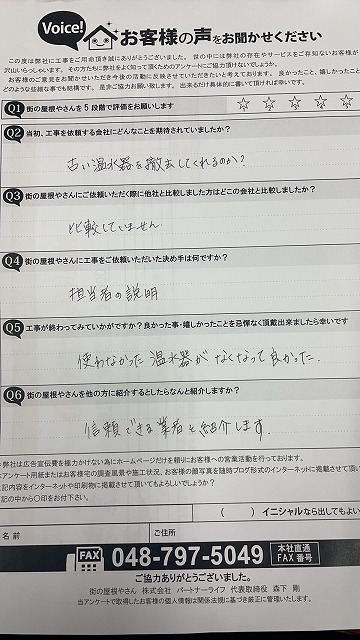 Voice! お客様の声をお聞かせください
この度は弊社に工事をご用命頂き誠にありがとうございました。世の中には弊社の存在やサービスをご存知ないお客様が
沢山いらっしゃいます。その方たちに弊社をよく知って頂くためのアンケートにご協力頂けないでしょうか。
お客様のご意見をお聞かせいただき今後の活動に反映させていただきたいと考えております。良かったこと、嬉しかったこと
どのような些細な事でも結構です。是非ご協力お願い致します。出来るだけ具体的に書いて頂ければ幸いです。
Q1 街の屋根やさんを5段階で評価をお願いします ☆ ☆ ☆ ☆ ☆
Q2 当初、工事を依頼する会社にどんなことを期待されていましたか?
古い温水器を撤去してくれるのか?
Q3 街の屋根やさんにご依頼いただく際に他社と比較しました方はどこの会社と比較しましたか?
比較していません
Q4 街の屋根やさんに工事をご依頼いただいた決め手は何ですか?
担当者の説明
Q5 工事が終わってみていかがですか?良かった事・嬉しかったことを忌憚なく頂戴出来ましたら幸いです
使わなかった温水器がなくなって良かった.
Q6 街の屋根やさんを他の方に紹介するとしたらなんと紹介しますか?
信頼できる業者と紹介します.
弊社は広告宣伝費を極力かけない為にホームページだけを頼りにお客様への営業活動を行っております。
アンケート用紙またはお客様宅の調査風景や施工状況、お客様の顔写真を随時ブログ形式のインターネットに掲載させて頂い
記内容をインターネットや印刷物に掲載させて頂いてもよろしいでしょうか?
記の中から〇印をお付け下さい。
( ) イニシャルなら出してもよい
名前 ご住所
FAX 048-797-5049 本社直通 FAX番号
ご協力ありがとうございました。
街の屋根やさん 株式会社 パートナーライフ 代表取締役 森下 剛
当アンケートで取得したお客様の個人情報は関係法規に基づき厳正に管理いたします。